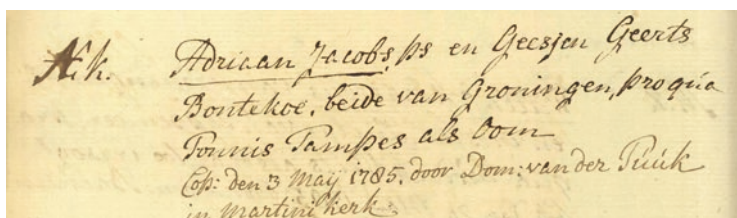 Nik. Adriaan Jacobs, ps en Geesjen Geerts
Bontekoe, beide van Groningen, pro qua
Tonnis Tampses als Oom
Cop: den 3 May 1785. door Dom: van der Tuuk
in Martini kerk.